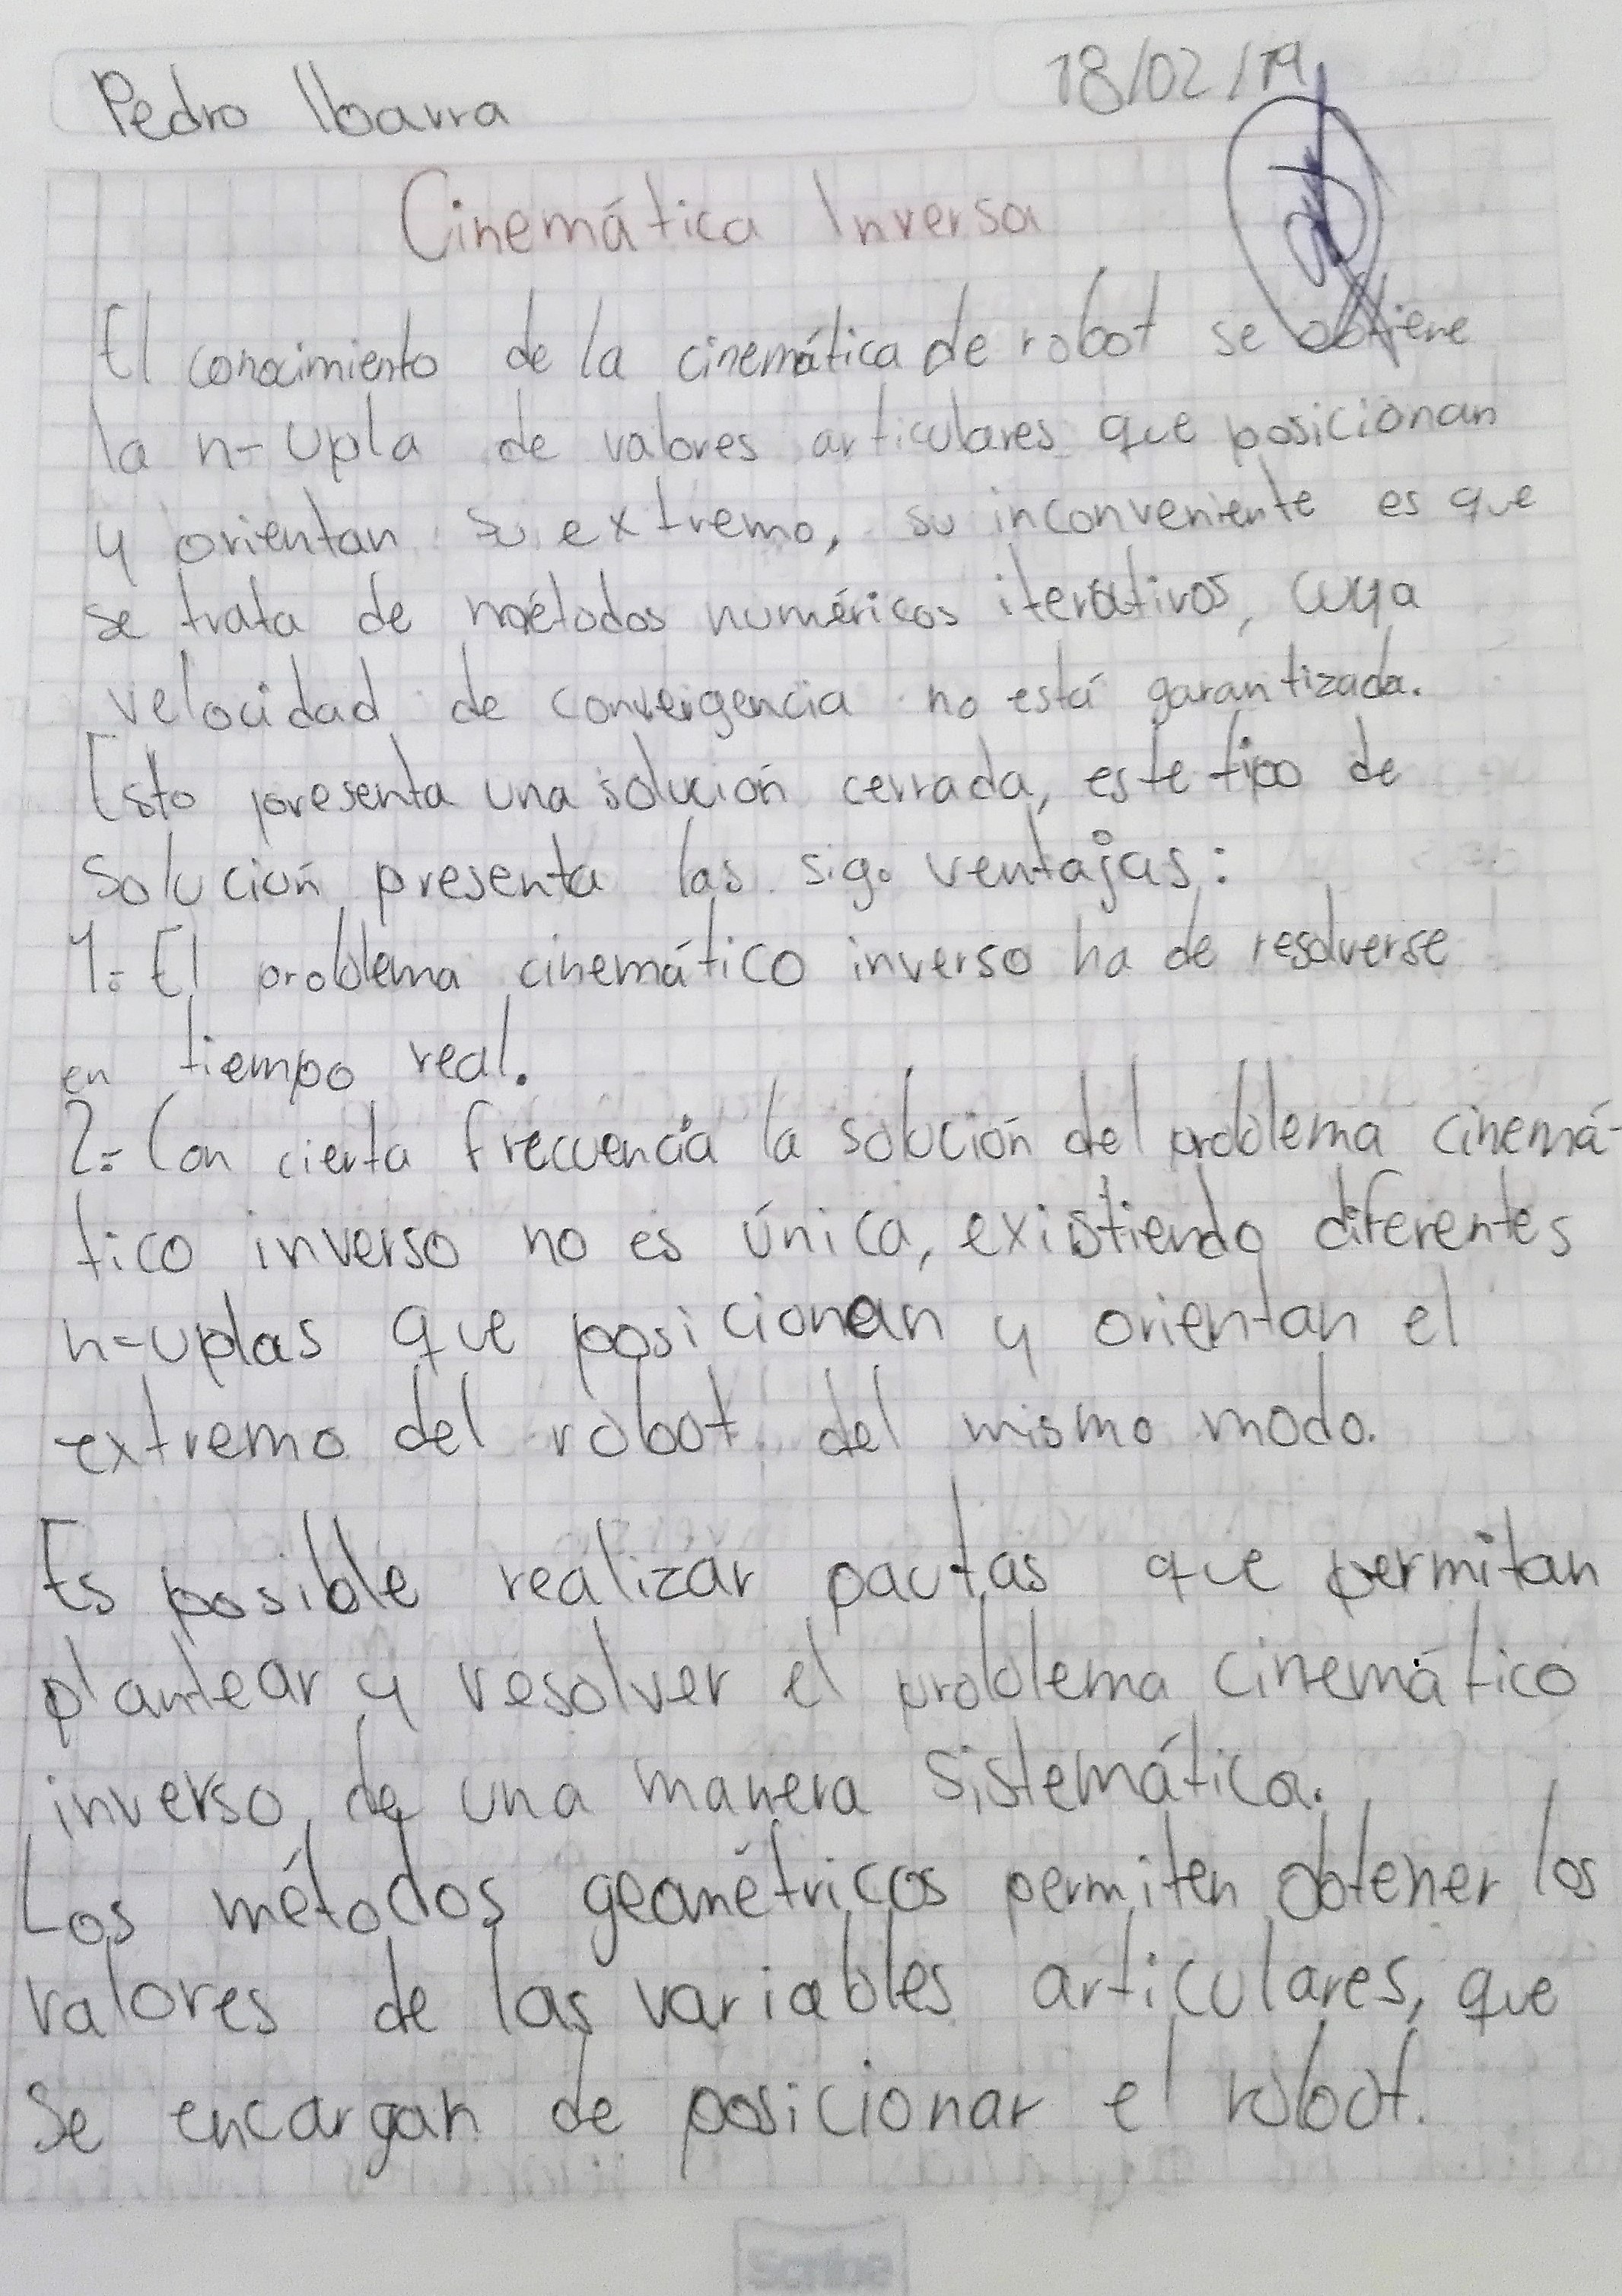 Pedro Ibarra
18/02/19
Cinemática Inversa
El conocimiento de la cinemática de robot se obtiene
la n-upla de valores articulares que posicionan
y orientan su extremo, su inconveniente es que
se trata de métodos numéricos iterativos, cuya
velocidad de convergencia no está garantizada.
Esto presenta una solución cerrada, este tipo de
solución presenta las sig. ventajas:
1.- El problema cinemático inverso ha de resolverse
en tiempo real.
2.- Con cierta frecuencia la solución del problema cinemá-
tico inverso no es única, existiendo diferentes
n-uplas que posicionan y orientan el
extremo del robot del mismo modo.
Es posible realizar pautas que permitan
plantear y resolver el problema cinemático
inverso de una manera sistemática.
Los métodos geométricos permiten obtener los
valores de las variables articulares, que
se encargan de posicionar el robot.
Scribe